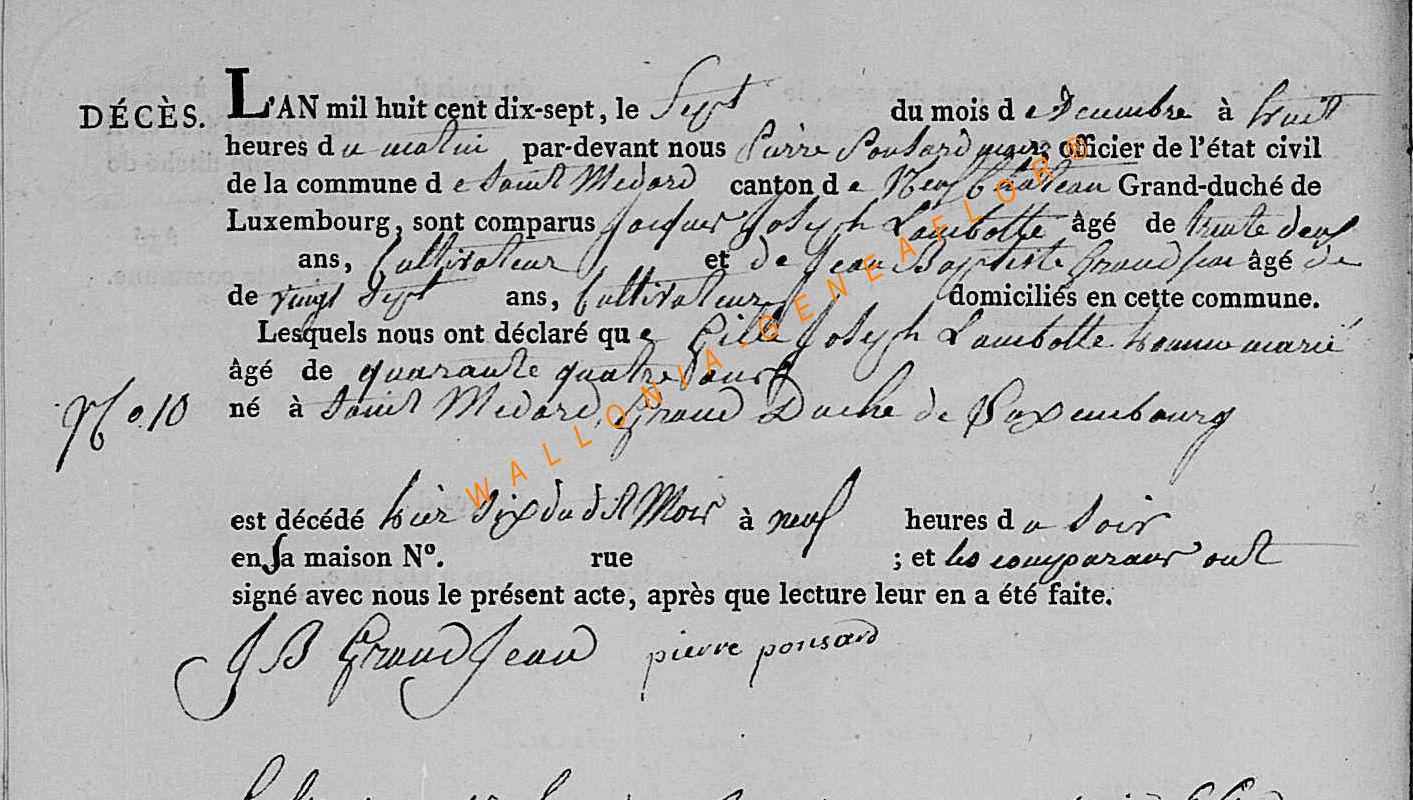 DÉCÈS. L'AN mil huit cent dix-sept, le Sept du mois d e Decembre à huit
heures d u matin par-devant nous Pierre Ponsard maire officier de l'état civil
de la commune d e Saint Medard canton d e Neufchateau Grand-duché de
Luxembourg, sont comparus Jacques Joseph Lambotte âgé de trente deux
ans, Cultivateur et de Jean Baptiste Grandjean âgé de
de vingt Sept ans, Cultivateurs domiciliés en cette commune.
Lesquels nous ont déclaré qu e Gille Joseph Lambotte homme marié
âgé de quarante quatre ans
No. 10 né à Saint Medard, Grand Duché de Luxembourg
est décédé hier Six du dit Mois à neuf heures d u Soir
en Sa maison N°. rue ; et les comparans ont
signé avec nous le présent acte, après que lecture leur en a été faite.
J B Grand Jean pierre ponsard
WALLONIA - GENEAFLOR ®